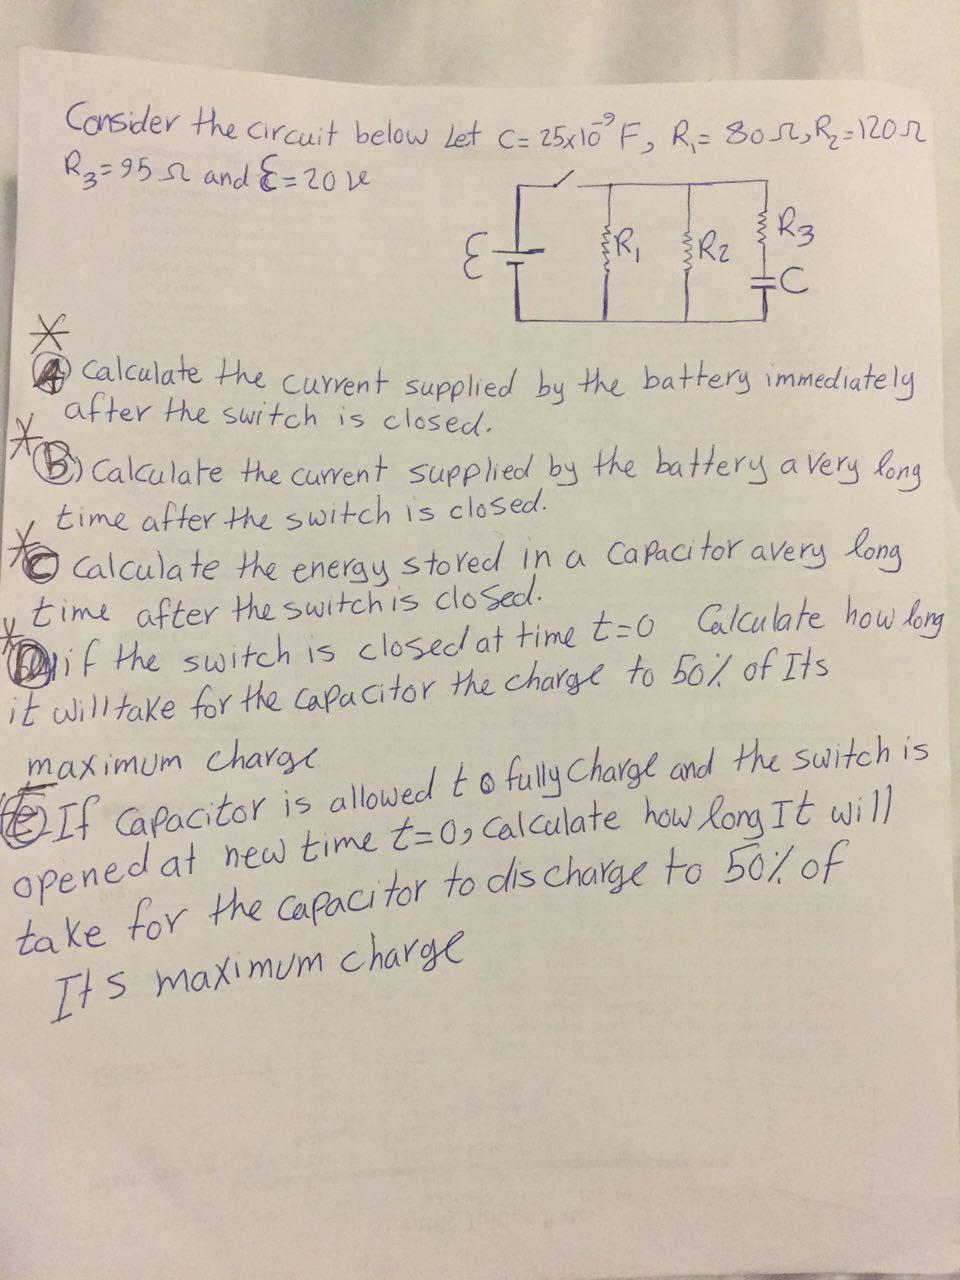 Consider the circuit below Let C= 25x10⁻⁹ F, R₁= 80Ω, R₂=120Ω
R₃=95 Ω and Ɛ=20 v
Ɛ
R₁
R₂
R₃
C
A) Calculate the current supplied by the battery immediately
after the switch is closed.
B) Calculate the current supplied by the battery a very long
time after the switch is closed.
C Calculate the energy stored in a capacitor avery long
time after the switch is closed.
D) if the switch is closed at time t=0 Calculate how long
it will take for the capacitor the charge to 50% of Its
maximum charge
E) If capacitor is allowed to fully charge and the switch is
opened at new time t=0, calculate how long It will
take for the capacitor to discharge to 50% of
Its maximum charge